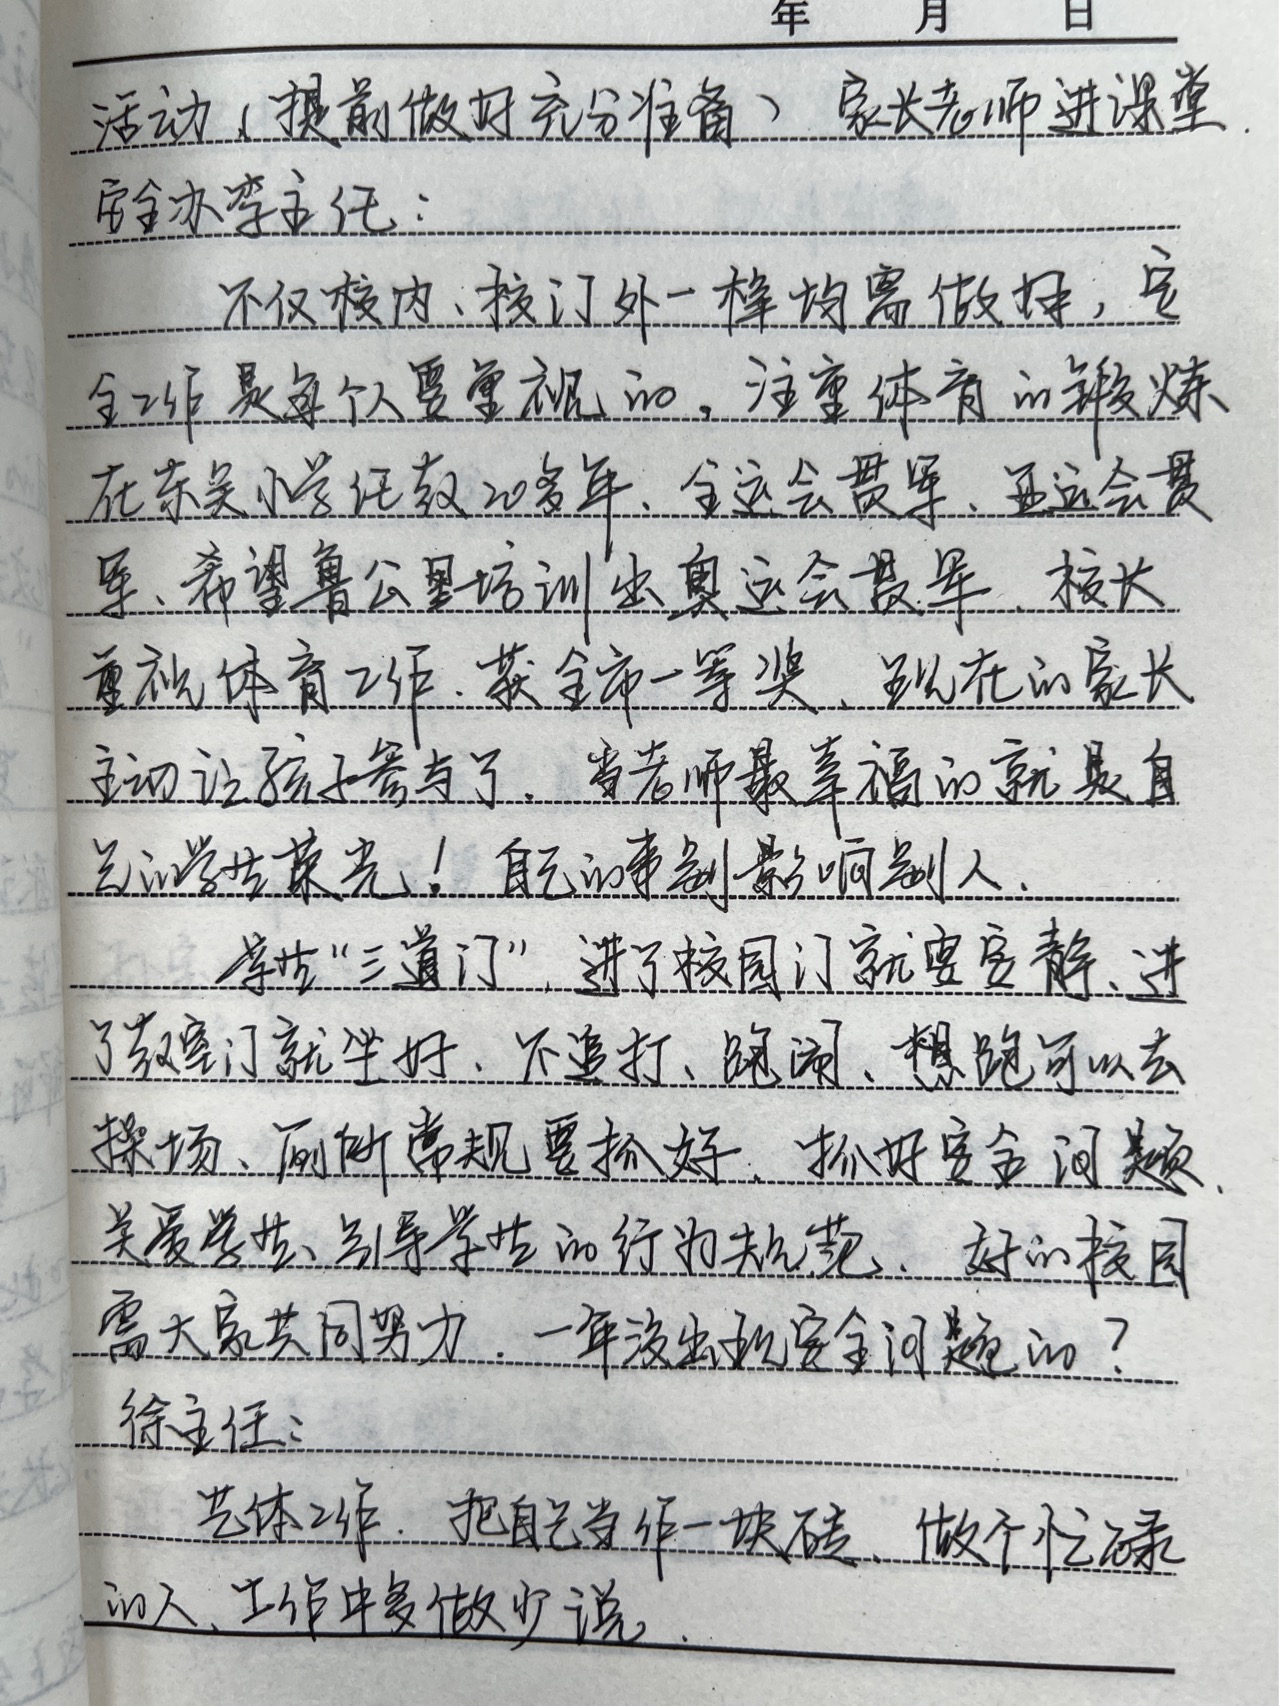 年 月 日
活动（提前做好充分准备） 家长老师进课堂.
安全办李主任：
不仅校内、校门外一样均需做好，安
全工作是每个人要重视的。注重体育的锻炼
在东吴小学任教20多年、全运会贯军、亚运会贯
军、希望鲁公星培训出奥运会贯军、校长
重视体育工作.获全市一等奖、现在的家长
主动让孩子参与了.当老师最幸福的就是自
己的学生荣光！自己的事别影响别人.
学生“三道门”，进了校园门就要安静、进
了教室门就坐好、不追打、跑闹、想跑可以去
操场、厕所常规要抓好、抓好安全问题、
关爱学生、引导学生的行为规范、好的校园
需大家共同努力.一年没出现安全问题的？
徐主任：
艺体工作.把自己当作一块砖、做个忙碌
的人、工作中多做少说.